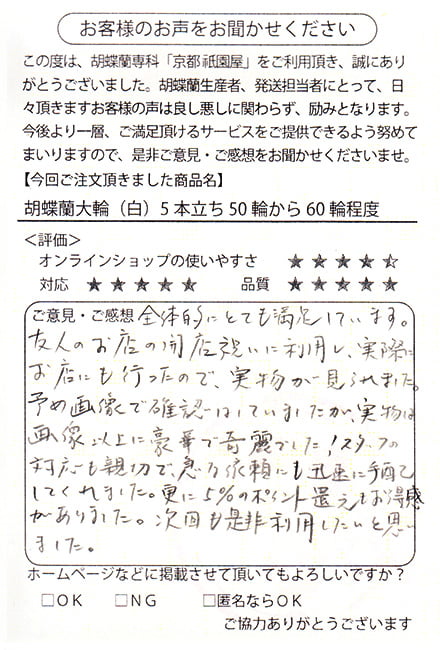 お客様のお声をお聞かせください
この度は、胡蝶蘭専科「京都祇園屋」をご利用頂き、誠にあり
がとうございました。胡蝶蘭生産者、発送担当者にとって、日
々頂きますお客様の声は良し悪しに関わらず、励みとなります。
今後より一層、ご満足頂けるサービスをご提供できるよう努めて
まいりますので、是非ご意見・ご感想をお聞かせくださいませ。
【今回ご注文頂きました商品名】
胡蝶蘭大輪（白）5本立ち50輪から60輪程度
＜評価＞
オンラインショップの使いやすさ ★★★★⯪
対応 ★★★★★ 品質 ★★★★★
ご意見・ご感想 全体的にとても満足しています。
友人のお店の開店祝いに利用し、実際に
お店にも行ったので、実物が見られました。
予め画像で確認はしていましたが、実物は
画像以上に豪華で奇麗でした！スタッフの
対応も親切で、急な依頼にも迅速に手配
してくれました。更に5%のポイント還元もお得感
がありました。次回も是非利用したいと思い
ました。
ホームページなどに掲載させて頂いてもよろしいですか？
□OK □NG □匿名ならOK
ご協力ありがとうございます